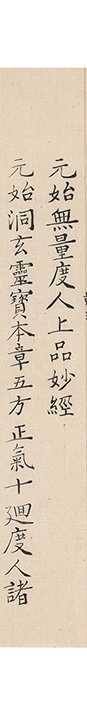 元始無量度人上品妙經
元始洞玄靈寶本章五方正氣十廻度人諸